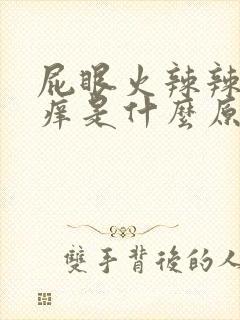 屁眼火辣辣
痒是什麼原
雙手背後的人